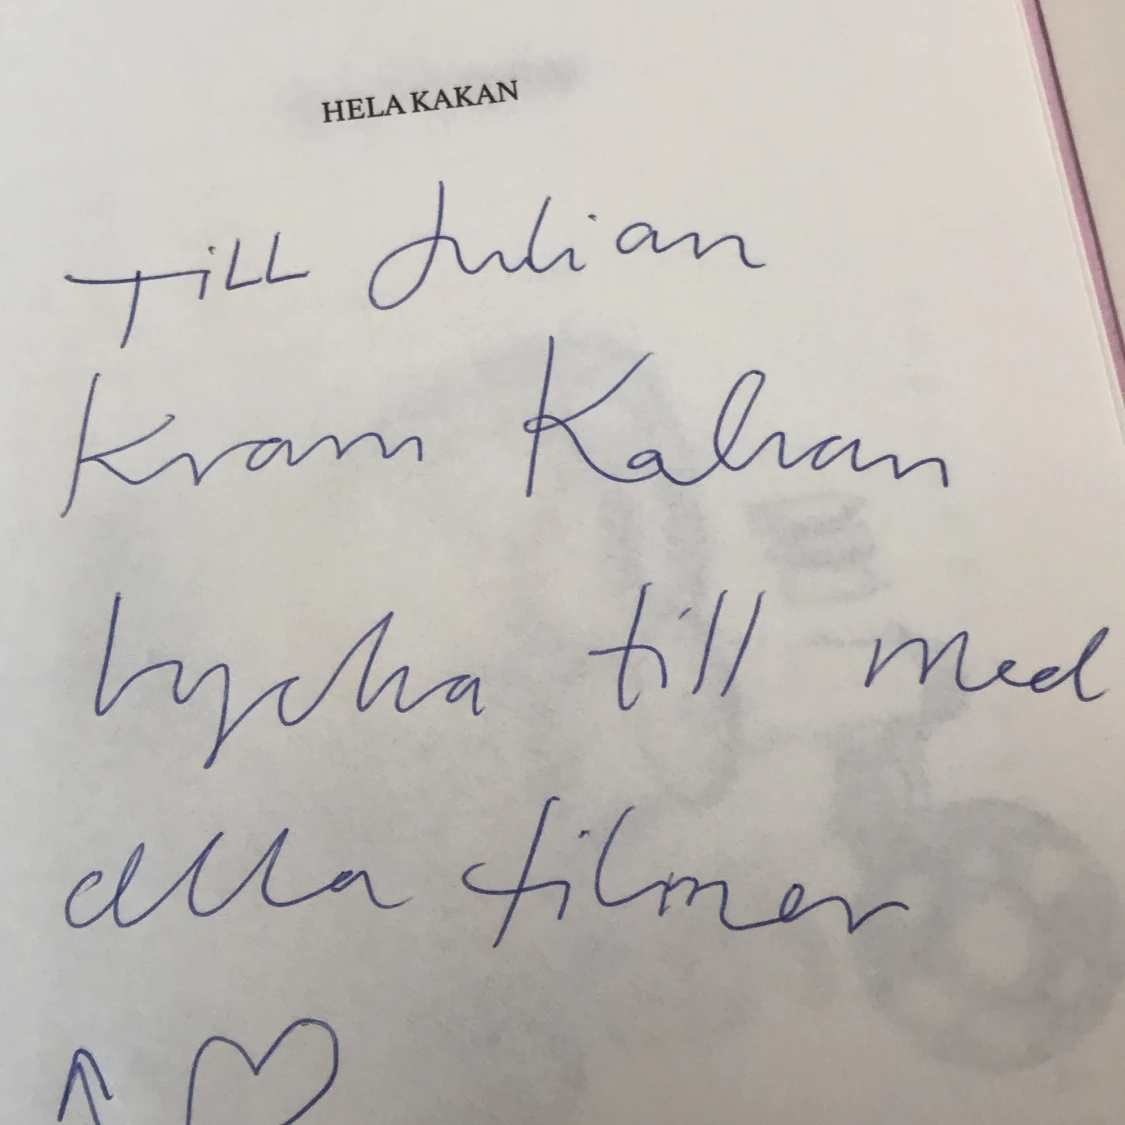 HELA KAKAN
Till Julian
Kram Kakan
lycka till med
alla filmer